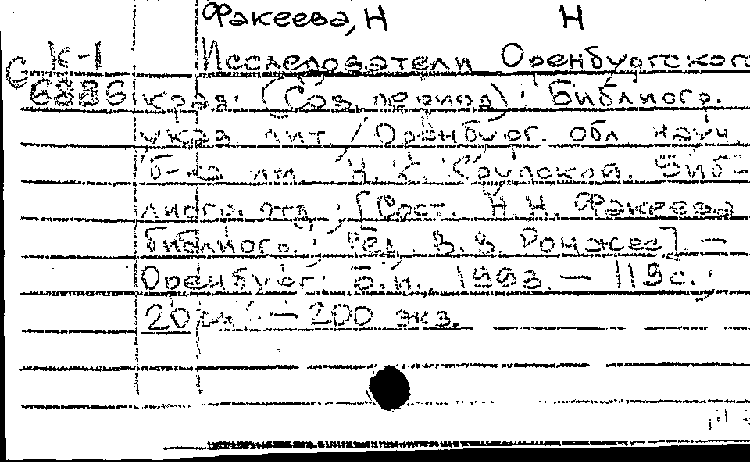 Факеева, Н Н
К-1 Исследователи Оренбургского
6886 края: (Сов. период): Библиогр.
указ лит / Оренбург. обл науч
б-ка им Н. К. Крупской. Биб-
лиогр. отд.; [Сост. Н.Н. Факеева
библиогр.; Ред. В.В.
Оренбург: Б.и., 1993. — 119с.;
20 см. — 200 экз.